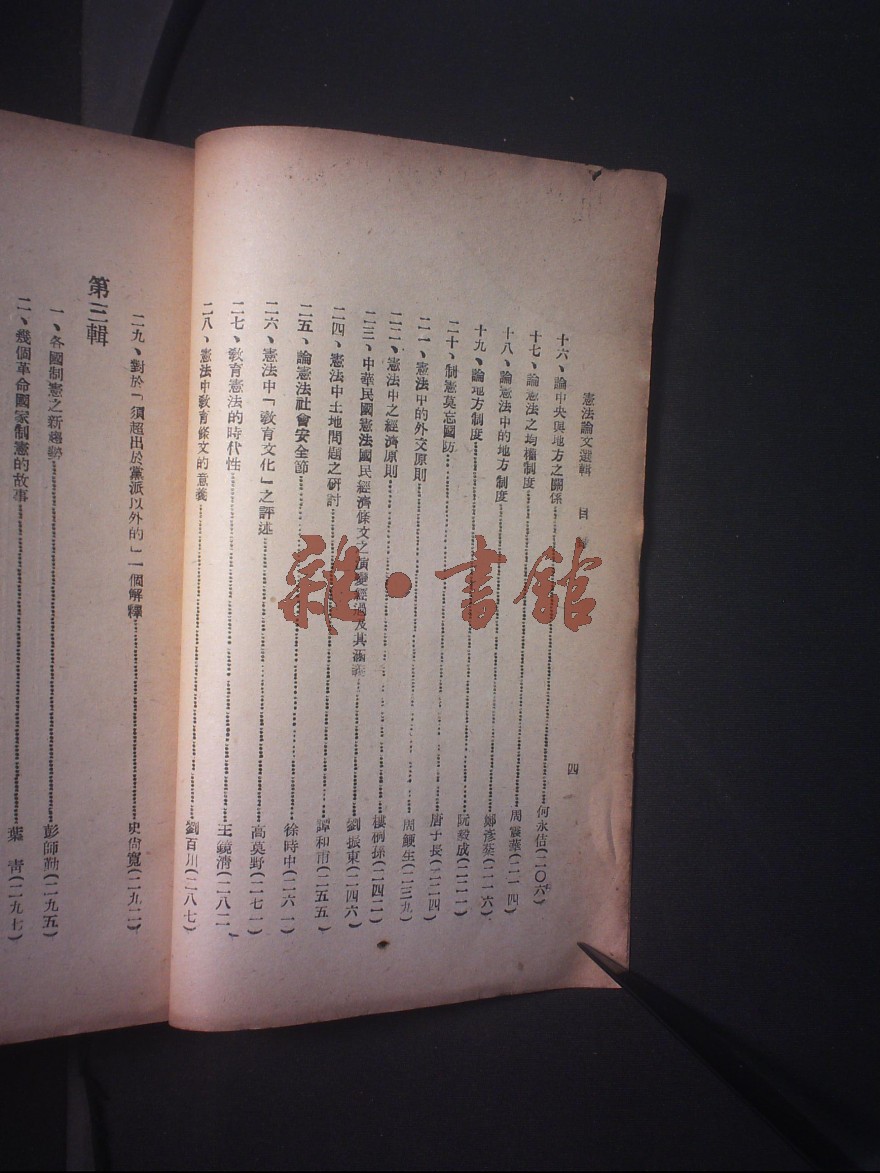 憲法論文選輯 目
四
十六、論中央與地方之關係……何永佶(二〇六)
十七、論憲法之均權制度……周震華(二一四)
十八、論憲法中的地方制度……鄭彥棻(二一六)
十九、論地方制度……阮毅成(二二二)
二十、制憲莫忘國防……唐子長(二二四)
二一、憲法中的外交原則……周鯁生(二三九)
二二、憲法中之經濟原則……樓桐孫(二四二)
二三、中華民國憲法國民經濟條文之演變經過及其涵義……劉振東(二四六)
二四、憲法中土地問題之研討……譚和甫(二五五)
二五、論憲法社會安全節……徐時中(二六一)
二六、憲法中「教育文化」之評述……高莫野(二七一)
二七、教育憲法的時代性……王鏡清(二八二)
二八、憲法中教育條文的意義……劉百川(二八七)
二九、對於「須超出於黨派以外的」一個解釋……史尚寬(二九二)
第三輯
一、各國制憲之新趨勢……彭師勤(二九五)
二、幾個革命國家制憲的故事……葉青(二九七)
雜·書館